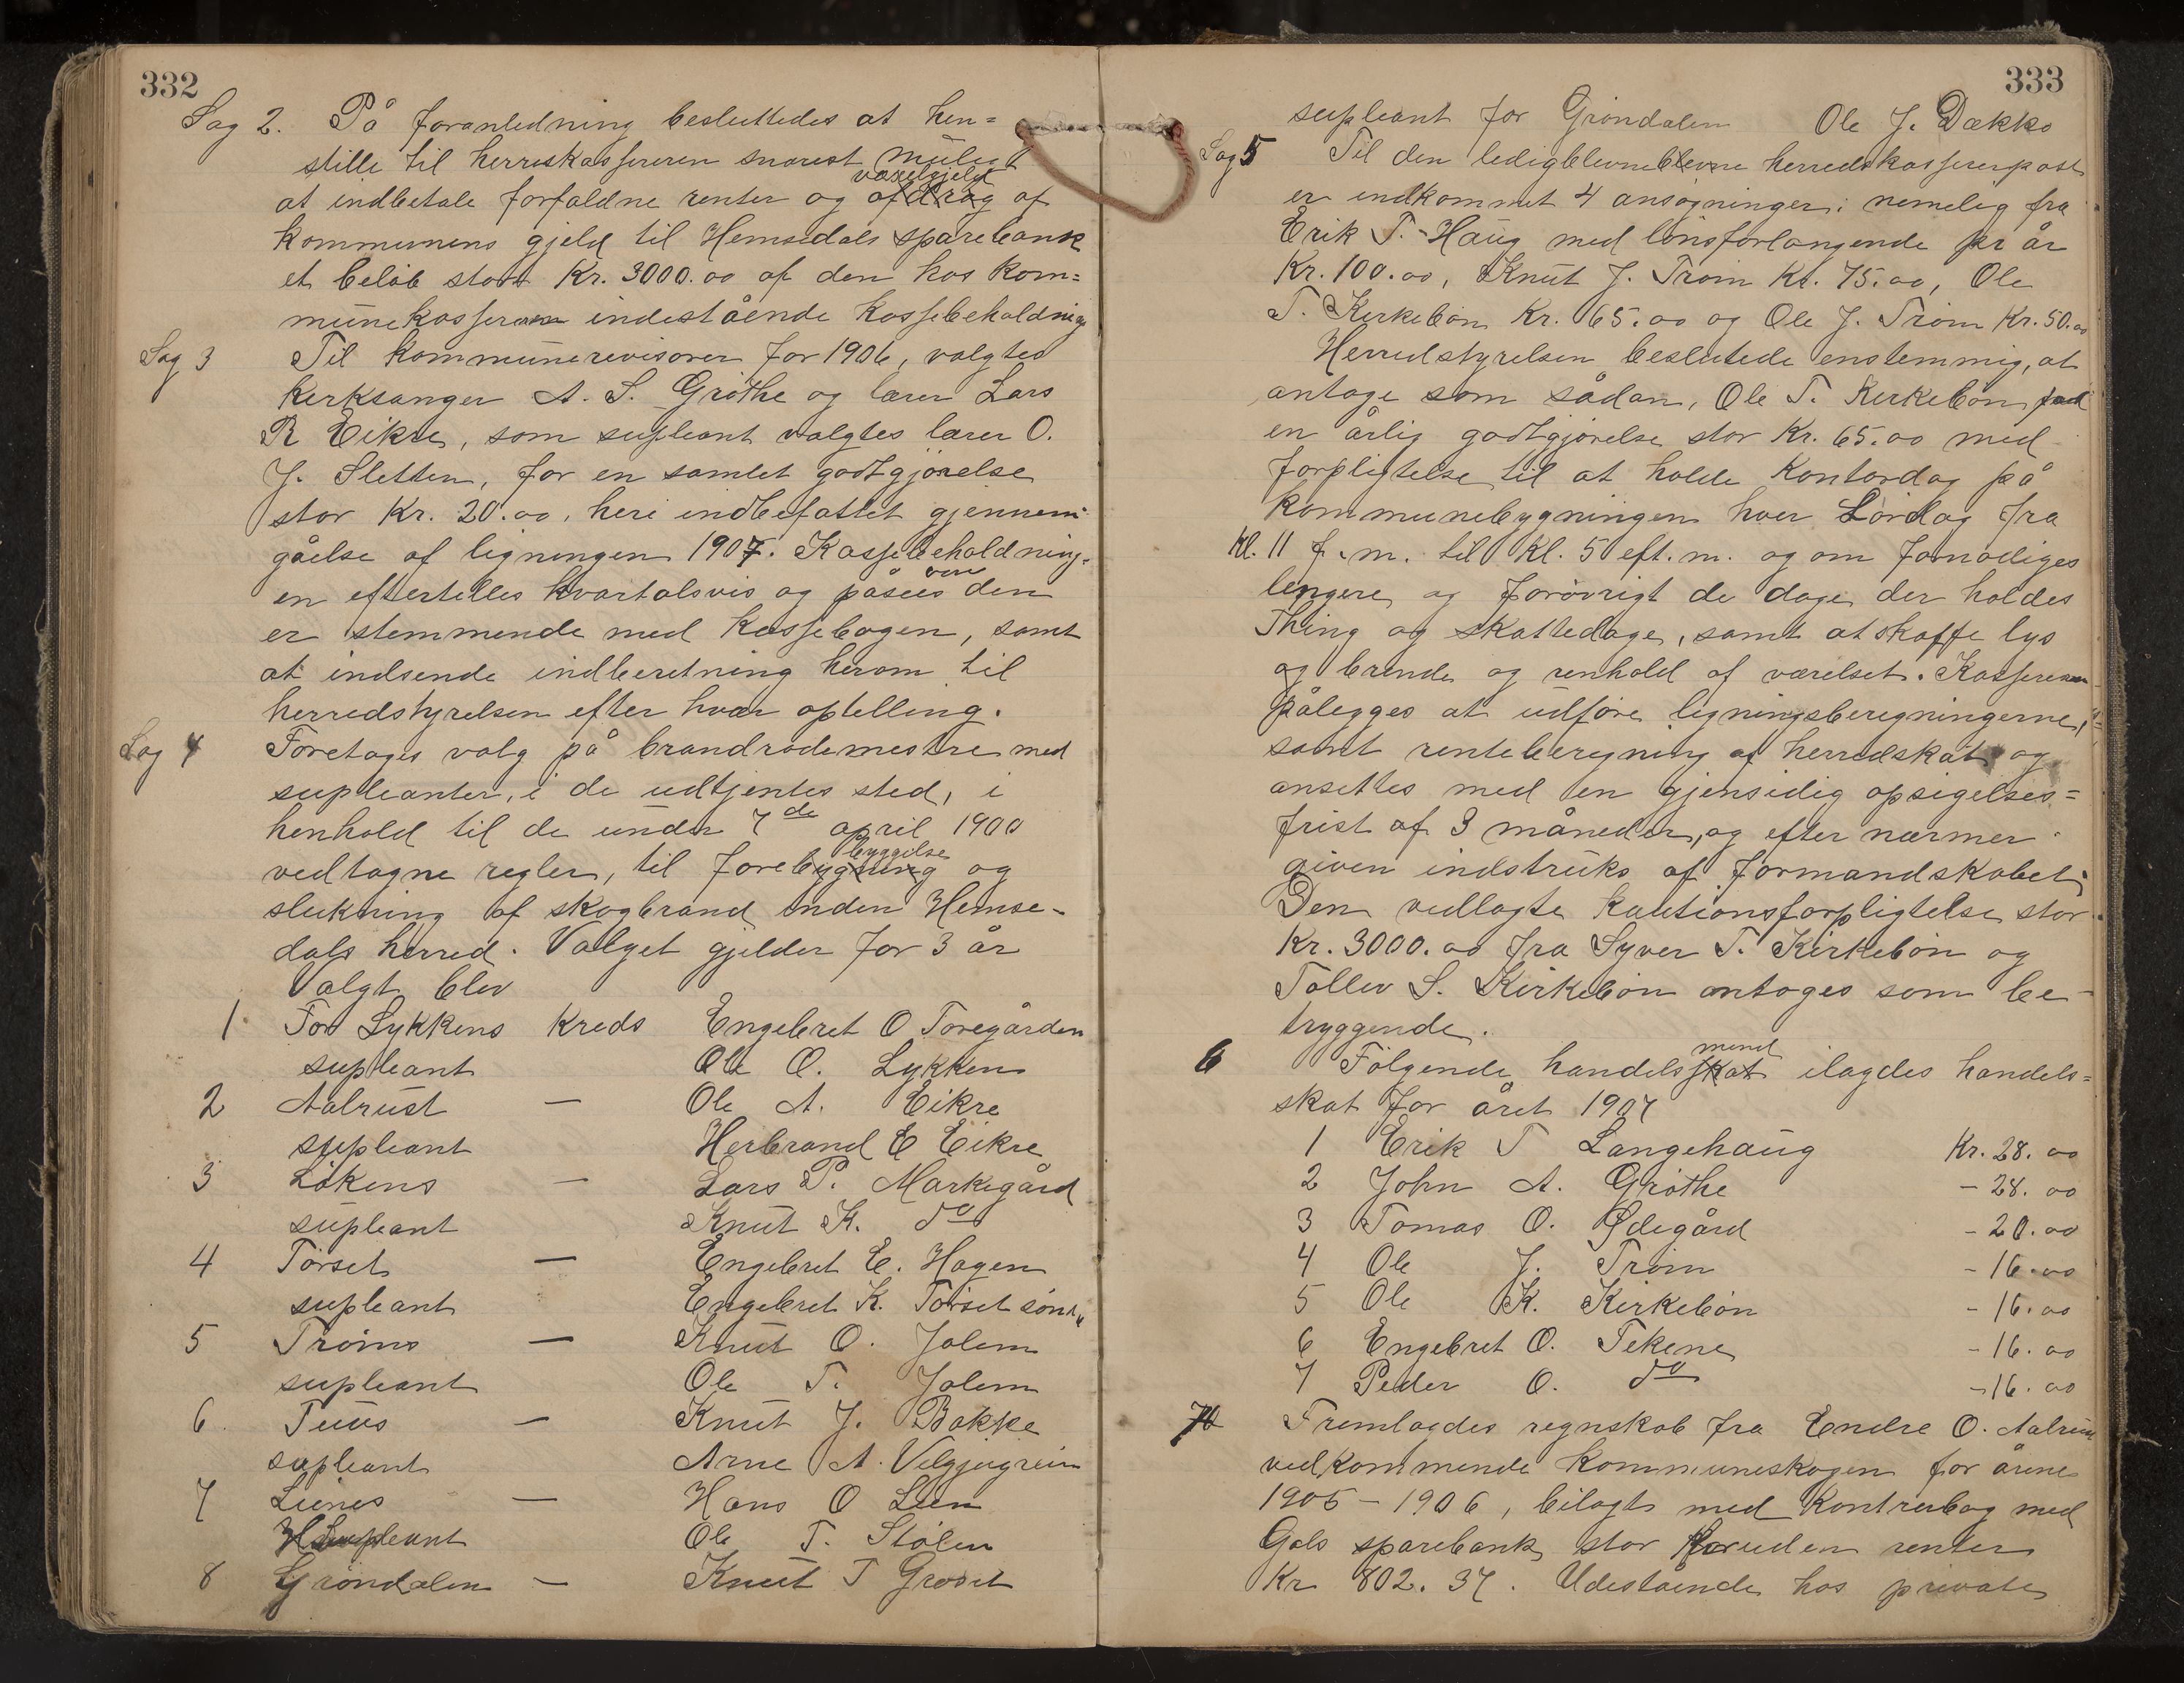 332
Sag 2. På foranledning besluttedes at hen=
stille til herreskassereren snarest muligt
at indbetale forfaldne renter og vaxelgjeld af
kommunens gjeld til Hemsedals sparebank
et beløb stort Kr. 3000.00 af den hos kom=
munekassereren indestående kassebeholdning
Sag 3 Til kommunerevisorer for 1906, valgtes
kerksanger A. S. Grøthe og lærer Lars
R Eikre, som supleant valgtes lærer O.
J. Sletten, for en samlet godtgjørelse
stor Kr. 20.00, heri indbefattet gjennem
gåelse af ligningen 1907. Kassebeholdning-
en eftertelles kvartalsvis og påsees den
er stemmende med kassebogen, samt
at indsende indberetning herom til
herredstyrelsen efter hvær optelling.
Sag 4 Foretages valg på brandrodemestre med
supleanter, i de udtjentes sted, i
henhold til de under 7de april 1900
vedtagne regler, til forebyggelse og
slukning af skogbrand inden Hemse-
dals herred. Valget gjelder for 3 år
Valgt blev
1. For Lykkens Kreds Engebret O Toregården
supleant Ole O. Lykken
2 Aalrust — Ole A. Eikre
supleant Herbrand E Eikre
3 Løkens — Lars P. Markegård
supleant Knut K. do
4 Tørset — Engebret E. Hagen
supleant Engebret K. Tørset søndre
5 Trøms — Knut O. Jolem
supleant Ole T. Jolem
6. Tuus — Knut J. Bakke
supleant Arne A.
7 Lunes — Hans O Lun
Supleant Ole T. Stølen
8 Grøndalen — Knut T Grøset
333
supleant for Grøndalen Ole J. Dækko
Sag 5 Til den ledigblevneblevne herredskassererpost
er indkommet 4 ansøgninger: nemelig fra
Erik T. Haug med lønsforlangende pr år
Kr. 100.00, Knut J. Trøm Kr. 75.00, Ole
T. Kirkebøn Kr. 65.00 og Ole J. Trøm Kr. 50.00
Herredstyrelsen beslutede enstemmig, at
antage som sådan, Ole T. Kerkebøn
en årlig godtgjørelse stor Kr. 65.00 med
forpligtelse til at holde Kontordag på
kommunebygningen hver Lørdag fra
Kl. 11 f.m. til Kl. 5 eft.m. og om fornødiges
lengere, og forøvrigt de dage der holdes
Thing og skattedage, samt at skaffe lys
og brende og renhold af værelset. Kassereren
pålegges at udføre ligningsberegningerne,
samt renteberegning af herredskat og
ansettes med en gjensidig opsigelses=
frist af 3 måneder, og efter nærmer
given indstruks af formandskabet.
Den vedlagte kautionsforpligtelse stor
Kr. 3000.00 fra Syver T. Kirkebøn og
Tollev S. Kirkebøn antages som be-
tryggende.
6 Følgende handelsmend ilagdes handels=
skat for året 1907
1 Erik T Langehaug Kr. 28.00
2 John A. Grøthe - 28.00
3 Tomas O. Ødegård - 20.00
4 Ole J. Trøm - 16.00
5 Ole K. Kirkebøn - 16.00
6 Engebret O. Tekene - 16.00
7 Peder O. do - 16.00
7 Fremlagdes regnskab fra Endre O. Aalrust
vedkommende kommuneskogen for årene
1905-1906, bilagt med Kontrabog med
Gols sparebank stor foruden renter
Kr 802.37. Udestående hos private